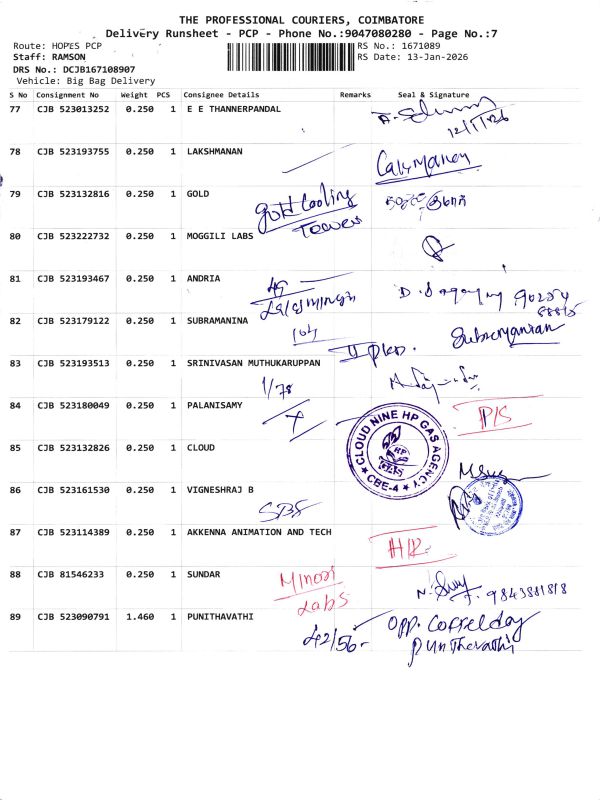 THE PROFESSIONAL COURIERS, COIMBATORE
Delivery Runsheet - PCP - Phone No.:9047080280 - Page No.:7
Route: HOPES PCP
RS No.: 1671089
Staff: RAMSON
RS Date: 13-Jan-2026
DRS No.: DCJB167108907
Vehicle: Big Bag Delivery
S No Consignment No Weight PCS Consignee Details Remarks Seal & Signature
77 CJB 523013252 0.250 1 E E THANNERPANDAL
12/1/26
78 CJB 523193755 0.250 1 LAKSHMANAN
79 CJB 523132816 0.250 1 GOLD
Gold Cooling
Towers
80 CJB 523222732 0.250 1 MOGGILI LABS
81 CJB 523193467 0.250 1 ANDRIA
82 CJB 523179122 0.250 1 SUBRAMANINA
Subramanian
83 CJB 523193513 0.250 1 SRINIVASAN MUTHUKARUPPAN
1/78
84 CJB 523180049 0.250 1 PALANISAMY
P/S
CLOUD NINE HP GAS AGENCY
HP
CBE-4
85 CJB 523132826 0.250 1 CLOUD
86 CJB 523161530 0.250 1 VIGNESHRAJ B
87 CJB 523114389 0.250 1 AKKENNA ANIMATION AND TECH
88 CJB 81546233 0.250 1 SUNDAR
Labs
9843881818
89 CJB 523090791 1.460 1 PUNITHAVATHI
42/56-
Opp.